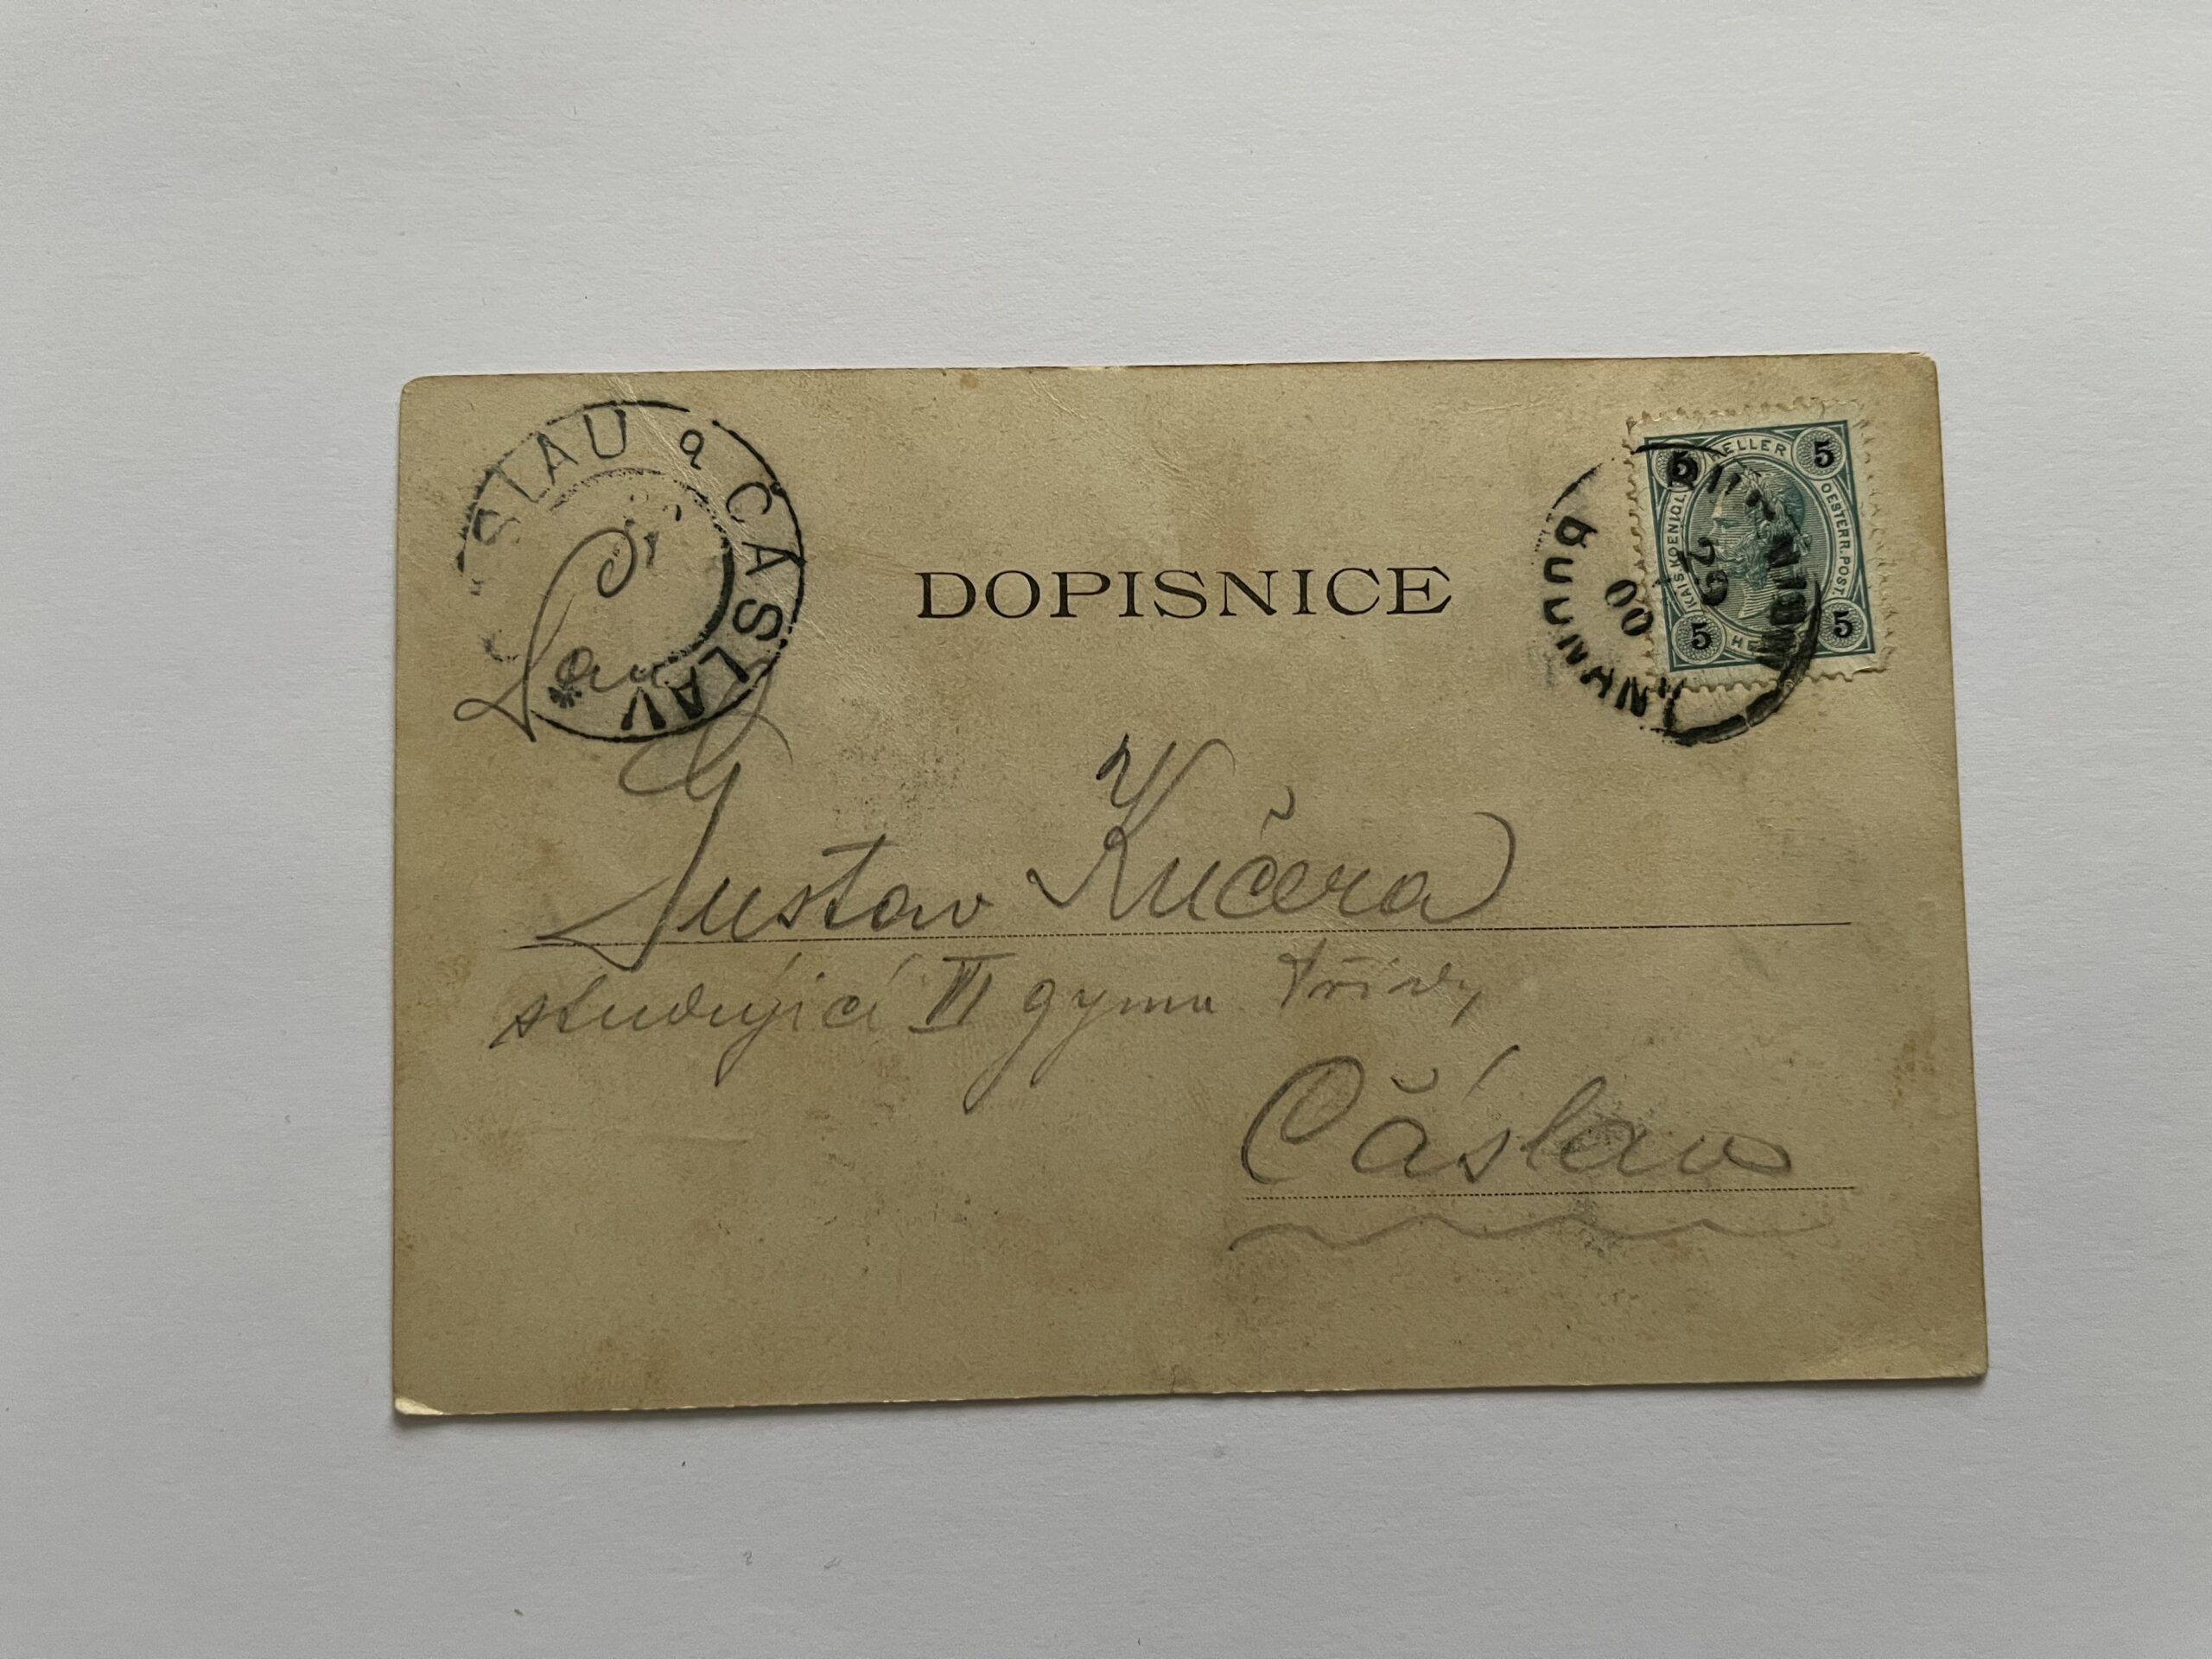 SLAU a ČÁSLAV
Pan
DOPISNICE
5 HELLER 5
KAIS.KOENIGL. OESTERR.POST.
5 5
29
00
Gustav Kučera
studující VI gymn třídy
Čáslav